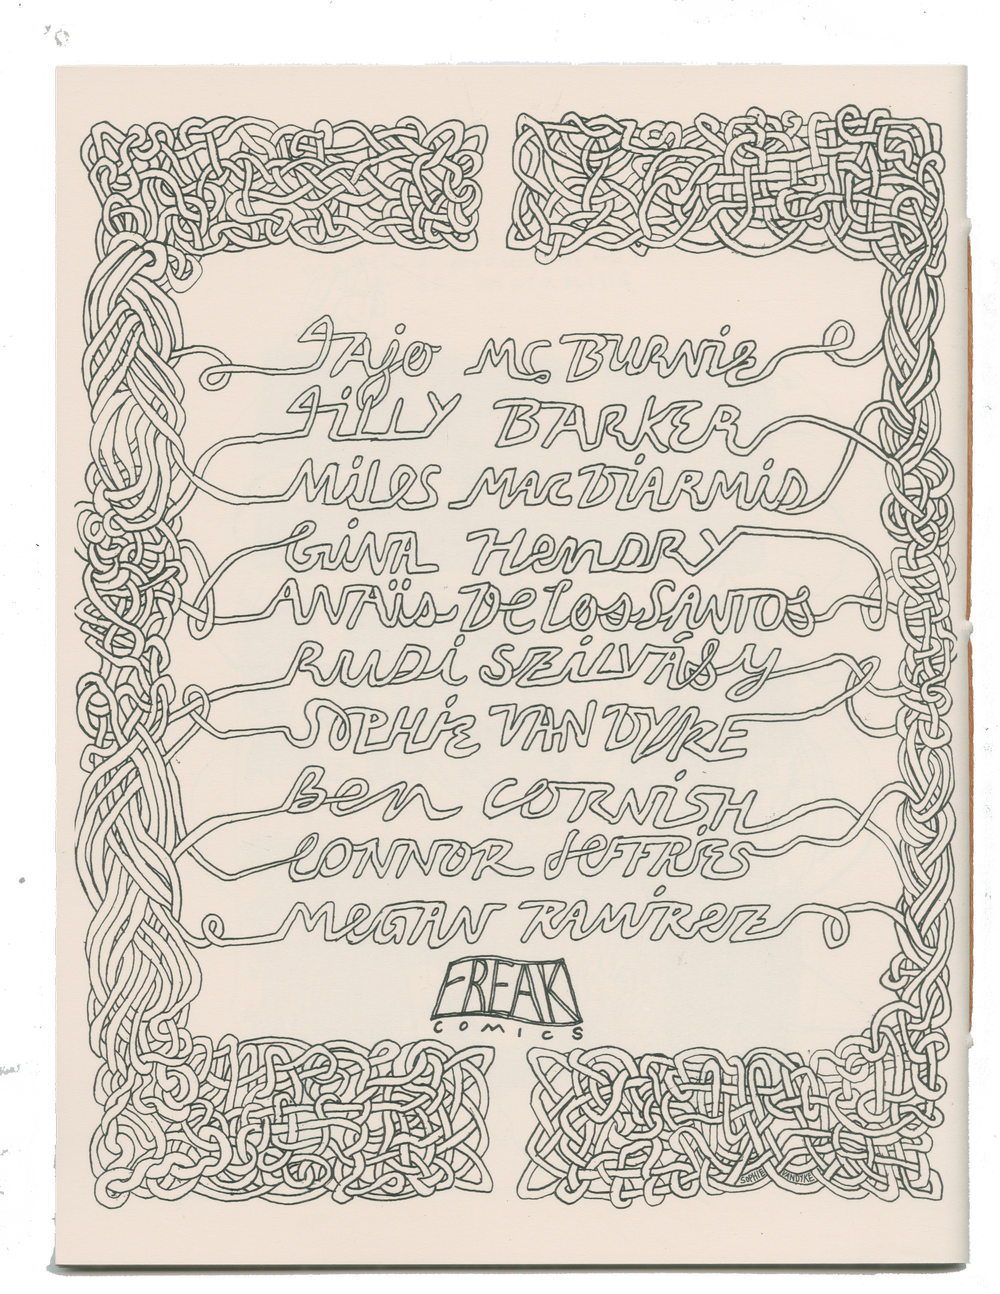 Tajo McBURNiE
JiLLY BARKER
MiLeS MACDIARMiD
GiNA HenDRY
ANAïs De Los SANTOS
RUDi SZiLVÁSY
SOPHiE VAN DYKE
Ben CORNiSH
CONNOR JeFFRiES
MeGAN RAMiReZ
FREAK
COMICS
SOPHIE VANDYKE